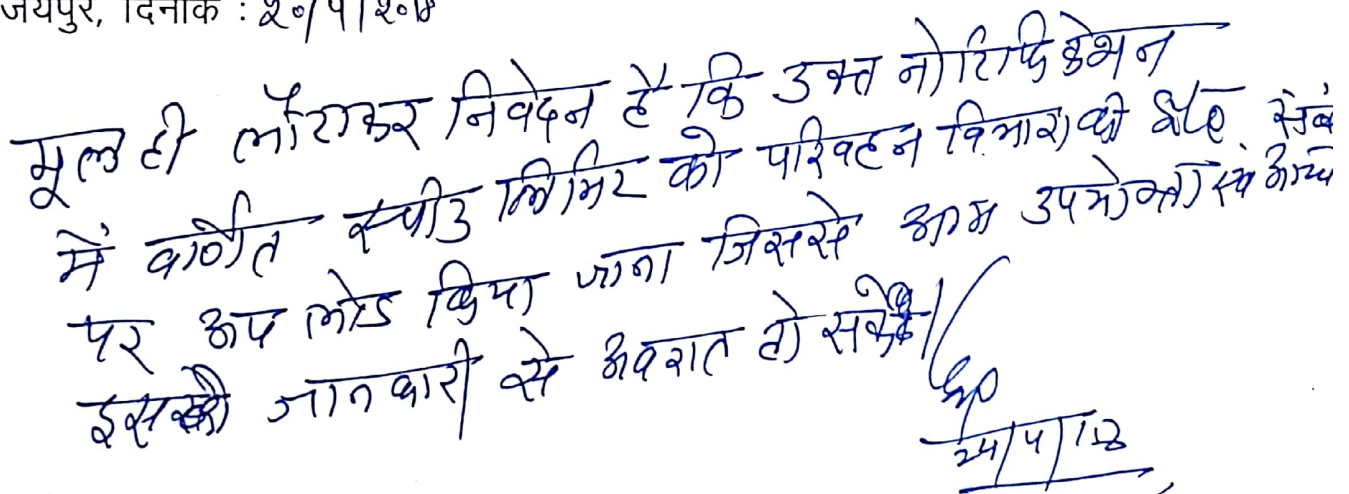 जयपुर, दिनांक : २०/५/२०१८
मूल ही लौटाकर निवेदन है कि उक्त नोटिफिकेशन
में वर्णित स्पीड लिमिट को परिवहन विभाग की
पर अप लोड किया जाना जिससे आम उपभोक्ता एवं अन्य
इसकी जानकारी से अवगत हो सकें।
२५/५/१८